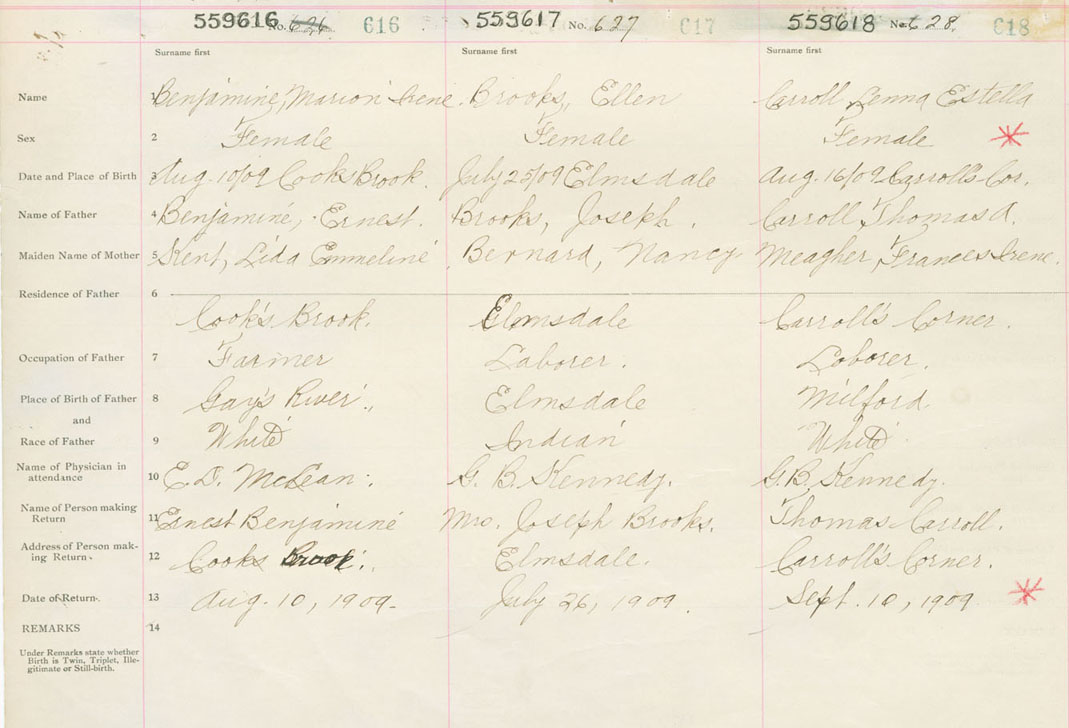 559616 No. 626 616 559617 No. 627 617 559618 No. 628. 618
Surname first Surname first Surname first
Name 1 Benjamine, Marion Irene. Brooks, Ellen Carroll Lenna Estella
Sex 2 Female Female Female
Date and Place of Birth 3 Aug. 10/09 Cooks Brook. July 25/09 Elmsdale Aug. 16/09 Carroll's Cor.
Name of Father 4 Benjamine, Ernest. Brooks, Joseph. Carroll Thomas A.
Maiden Name of Mother 5 Kent, Lida Emmeline Bernard, Nancy Meagher, Frances Irene.
Residence of Father 6
Cook's Brook. Elmsdale Carroll's Corner.
Occupation of Father 7 Farmer Laborer. Loborer.
Place of Birth of Father 8 Gay's River. Elmsdale Milford.
and
Race of Father 9 White Indian White
Name of Physician in
attendance 10 E.D. McLean. G. B. Kennedy. G.B. Kennedy.
Name of Person making
Return 11 Ernest Benjamine Mrs. Joseph Brooks. Thomas Carroll.
Address of Person mak-
ing Return 12 Cooks Brook. Elmsdale. Carroll's Corner.
Date of Return 13 Aug. 10, 1909. July 26, 1909. Sept. 10, 1909
REMARKS 14
Under Remarks state whether
Birth is Twin, Triplet, Ille-
gitimate or Still-birth.